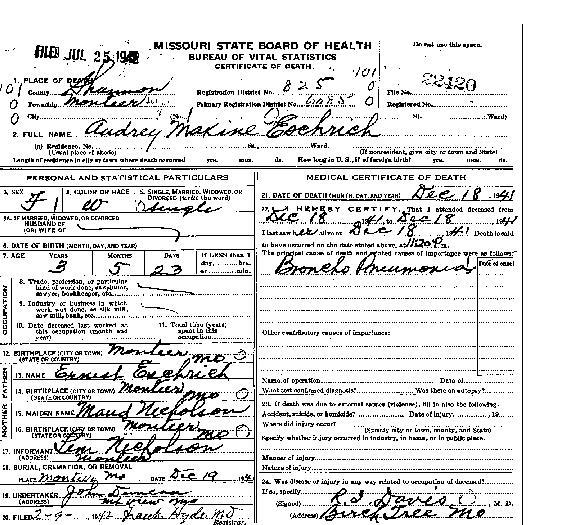 FILED JUL 25 1942
MISSOURI STATE BOARD OF HEALTH
BUREAU OF VITAL STATISTICS
CERTIFICATE OF DEATH
Do not use this space.
1. PLACE OF DEATH
County Shannon Registration District No. 825 File No. 22420
Township Montier Primary Registration District No. Registered No.
City No. St. Ward)
2. FULL NAME Audrey Maxine Eschrich
(a) Residence, No. St., Ward.
(Usual place of abode) (If nonresident, give city or town and State)
Length of residence in city or town where death occurred yrs. mos. ds. How long in U. S., if of foreign birth? yrs. mos. ds.
PERSONAL AND STATISTICAL PARTICULARS
3. SEX F 4. COLOR OR RACE W 5. SINGLE, MARRIED, WIDOWED, OR DIVORCED (write the word) Single
5A. IF MARRIED, WIDOWED, OR DIVORCED
HUSBAND OF
(OR) WIFE OF
6. DATE OF BIRTH (MONTH, DAY, AND YEAR)
7. AGE YEARS 3 MONTHS 5 DAYS 23 If LESS than 1 day, hrs. or min.
OCCUPATION
8. Trade, profession, or particular kind of work done, as spinner, sawyer, bookkeeper, etc.
9. Industry or business in which work was done, as silk mill, saw mill, bank, etc.
10. Date deceased last worked at this occupation (month and year)
11. Total time (years) spent in this occupation
12. BIRTHPLACE (CITY OR TOWN) Montier
(STATE OR COUNTRY) Mo
FATHER
13. NAME Ernest Eschrich
14. BIRTHPLACE (CITY OR TOWN) Montier
(STATE OR COUNTRY) Mo
MOTHER
15. MAIDEN NAME Maud Nicholson
16. BIRTHPLACE (CITY OR TOWN) Montier
(STATE OR COUNTRY) Mo
17. INFORMANT Lem Nicholson
(ADDRESS) Montier
18. BURIAL, CREMATION, OR REMOVAL
PLACE Montier Mo DATE Dec 19 1941
19. UNDERTAKER John Duncan
(ADDRESS) Mt View Mo
20. FILED 2-9- 1942 Frank Hyde M.D.
Registrar.
MEDICAL CERTIFICATE OF DEATH
21. DATE OF DEATH (MONTH, DAY, AND YEAR) Dec 18 1941
22. I HEREBY CERTIFY, That I attended deceased from
Dec 18, 1941, to Dec 18, 1941
I last saw her alive on Dec 18, 1941 Death is said
to have occurred on the date stated above, at 11:20 P.m.
The principal cause of death and related causes of importance were as follows:
Date of onset
Broncho Pneumonia
Other contributory causes of importance:
Name of operation Date of
What test confirmed diagnosis? Was there an autopsy?
23. If death was due to external causes (violence), fill in also the following:
Accident, suicide, or homicide? Date of injury , 19
Where did injury occur?
(Specify city or town, county, and State)
Specify whether injury occurred in industry, in home, or in public place.
Manner of injury
Nature of injury
24. Was disease or injury in any way related to occupation of deceased?
If so, specify
(Signed) R.S. Davis M. D.
(Address) Birch Tree Mo